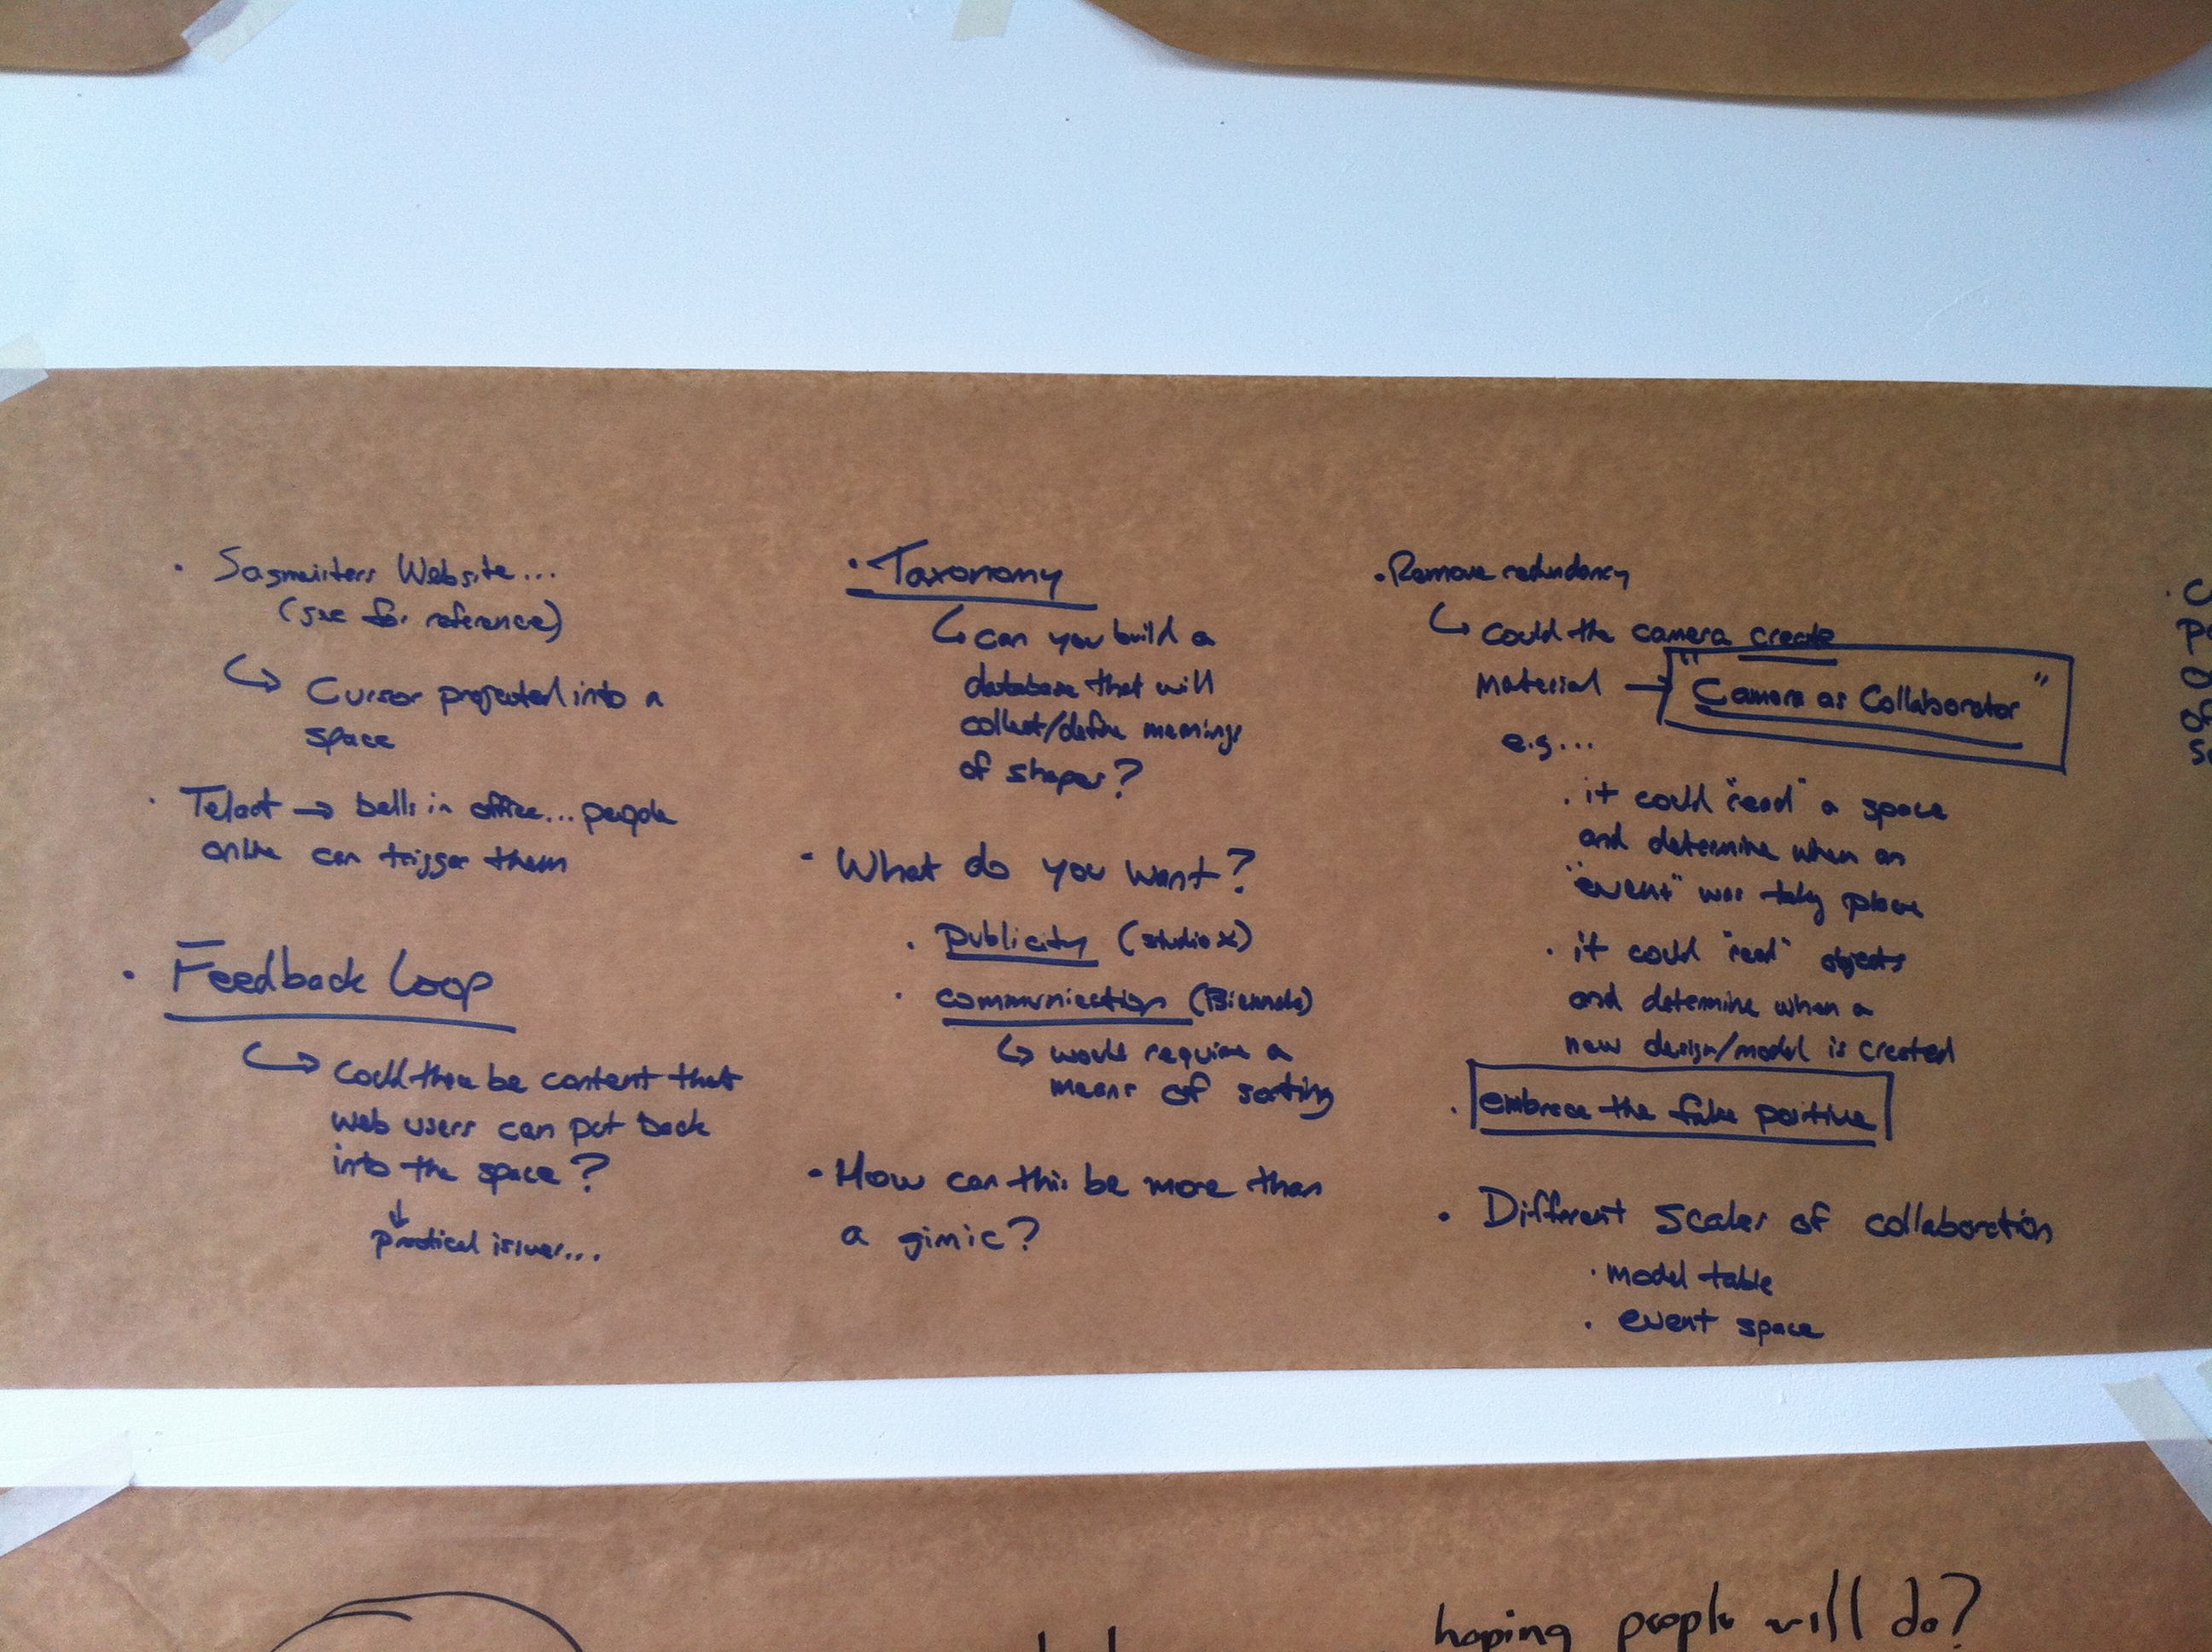 · Sagmeisters Website...
(see for reference)
↳ Cursor projected into a
space
· Telart → bells in office... people
online can trigger them
· Feedback Loop
↳ Could there be content that
web users can put back
into the space?
↓
practical issues...
· Taxonomy
↳ can you build a
database that will
collect/define meanings
of shapes?
· What do you want?
· publicity (studio x)
· communication (Biennale)
↳ would require a
means of sorting
· How can this be more than
a gimic?
· Remove redundancy
↳ Could the camera create
material → "Camera as Collaborator"
e.g...
· it could "read" a space
and determine when an
"event" was taking place
· it could "read" objects
and determine when a
new design/model is created
· embrace the false positive
· Different scales of collaboration
· model table
· event space
hoping people will do?